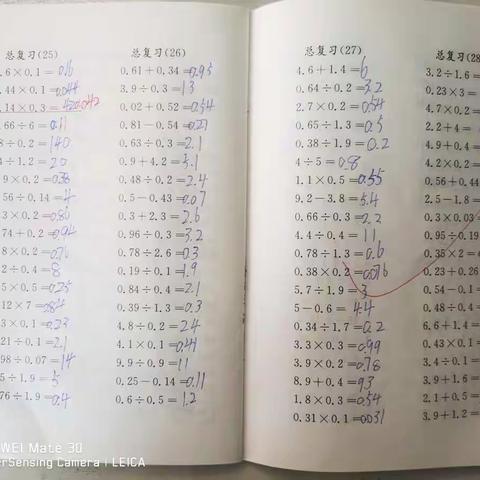 总复习(25)
.6×0.1=0.6
.44×0.1=0.044
.14×0.3=0.042
.66÷6=0.11
÷0.2=140
4÷1.2=20
9×0.2=0.38
56÷0.14=4
3×0.2=0.86
74+0.2=0.94
8×0.2=0.76
2÷0.4=8
5×0.5=0.25
12×7=284
3×0.1=0.23
21÷0.1=2.1
98÷0.07=14
5÷1.9=5
76÷1.9=0.4
总复习(26)
0.61+0.34=0.95
3.9÷0.3=13
0.02+0.52=0.54
0.81-0.54=0.27
0.63÷0.3=2.1
0.9+4.2=5.1
0.48÷0.2=2.4
0.5-0.43=0.07
0.3+2.3=2.6
0.96÷0.3=3.2
0.78÷2.6=0.3
0.19÷0.1=1.9
0.84÷0.4=2.1
0.39÷1.3=0.3
4.8÷0.2=24
4.1×0.1=0.41
9.9÷0.9=11
0.25-0.14=0.11
0.6÷0.5=1.2
总复习(27)
4.6+1.4=6
0.64÷0.2=3.2
2.7×0.2=0.54
0.65÷1.3=0.5
0.38÷1.9=0.2
4÷5=0.8
1.1×0.5=0.55
9.2-3.8=5.4
0.66÷0.3=2.2
4.4÷0.4=11
0.78÷1.3=0.6
0.38×0.2=0.076
5.7÷1.9=3
5-0.6=4.4
0.34÷1.7=0.2
3.3×0.3=0.99
3.9×0.2=0.78
8.9+0.4=9.3
1.8×0.3=0.54
0.31×0.1=0.031
总复习(28
3.2÷1.6=
0.23×3=
4.7×0.2=
2.2+4=
4.9+0.4=
4.2×0.2=
0.56+0.44
2.5-1.8=
0.3×0.03
0.95÷0.19
0.35×2=
0.23+0.26
0.54-0.1
0.48÷0.4
6.6+1.4=
0.43×0.1
3.4÷0.1=
3.9+1.6=
2.1+0.5=
3.9+1.2=
WEI Mate 30
erSensing Camera | LEICA